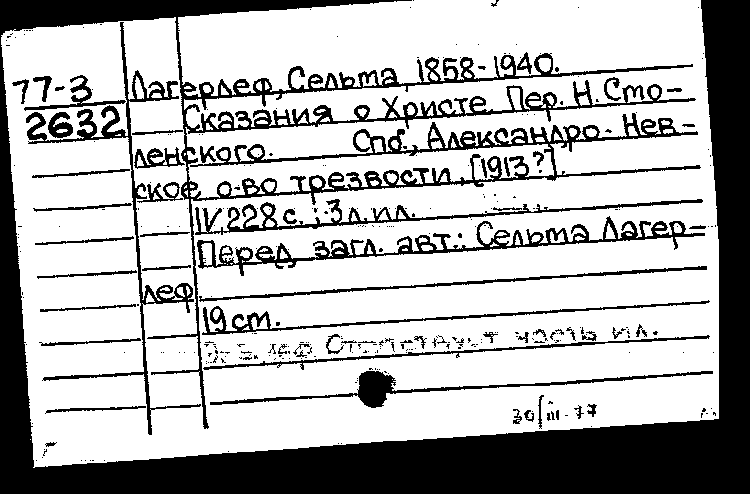 77-3 Лагерлеф, Сельма, 1858-1940.
2632 Сказания о Христе. Пер. Н. Сто-
ленского. Спб., Александро-Нев-
ское о-во трезвости, [1913?].
IV, 228 с.; 3 л. ил.
Перед загл. авт.: Сельма Лагер-
леф
19 см.
Э-з. деф. Отсутствует часть ил.
30/III-77